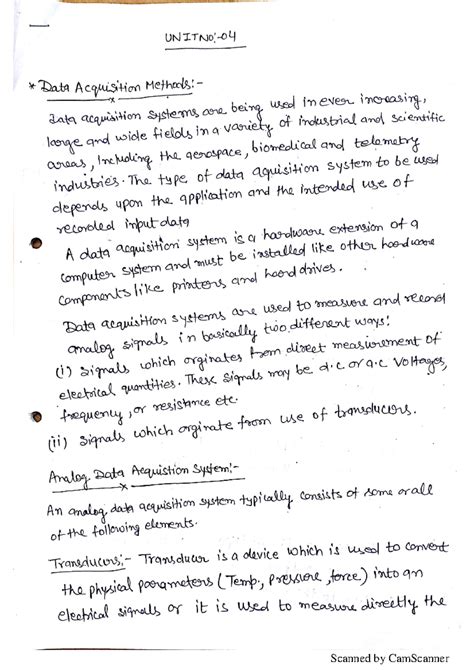 UNITNO:-04
* Data Acquisition Methods:-
Data acquisition systems are being used in ever increasing,
large and wide fields in a variety of industrial and scientific
areas, Including the aerospace, biomedical and telemetry
industries. The type of data aquisition system to be used
depends upon the application and the intended use of
recorded input data
A data acquisition system is a hardware extension of a
computer system and must be installed like other hardware
components like printers and hard drives.
Data acquisition systems are used to measure and record
analog signals in basically two different ways:
(i) signals which orginates from direct measurement of
electrical quantities. These signals may be d.c or a.c Voltages,
frequency, or resistance etc.
(ii) signals which orginate from use of transducers.
Analog Data Acquistion System:-
An analog data acquisition system typically consists of some or all
of the following elements.
Transducers:- Transducer is a device which is used to convert
the physical parameters (Temp., pressure, force) into an
electrical signals or it is used to measure directly the
Scanned by CamScanner